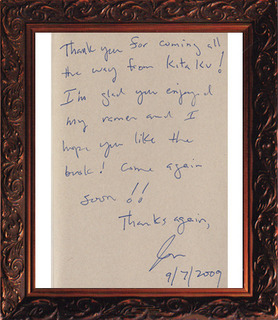 Thank you for coming all
the way from Kita Ku!
I'm glad you enjoyed
my ramen and I
hope you like the
book! Come again
soon!!
Thanks again,
9/7/2009